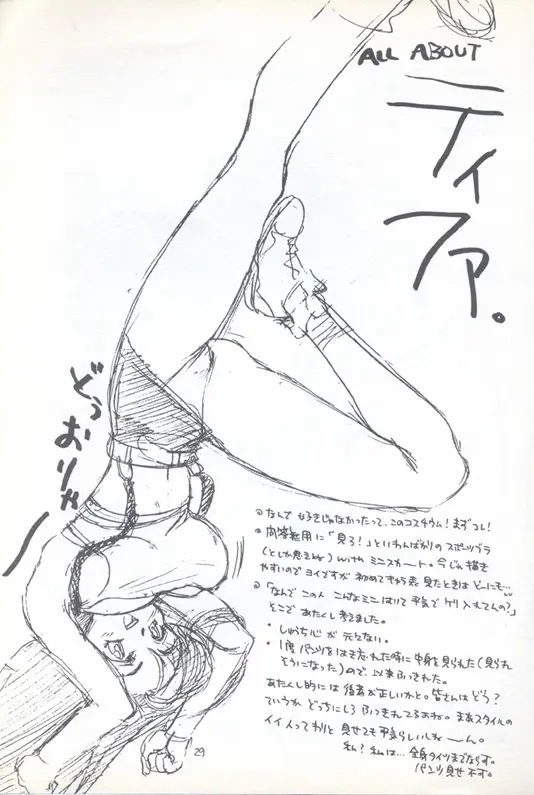 ALL ABOUT
ティファ。
どぅおりゃー
◎なんで好きじゃなかったって、このコスチウム!まずコレ!
◎問答無用に「見ろ!」といわんばかりのスポーツブラ
(としか思えねぇ) with ミニスカート。今じゃ描き
やすいのでヨイですが初めてキャラ表見たときはどーにも…
◎「なんでこの人こんなミニはいて平気でケリ入れてんの?」
とここであたくし考えました。
・しゅうち心が元々ない。
・1度パンツをはき忘れた時に中身を見られた(見られ
そうになった)ので、以来ふっきれた。
あたくし的には後者が正しいかと。皆さんはどう?
ていうかどっちにしろふっきれてるよね。まあスタイルの
イイ人ってわりと見せても平気らしいしねーん。
私?私は…全身タイツまでならす。
パンツ見せ不す。
29